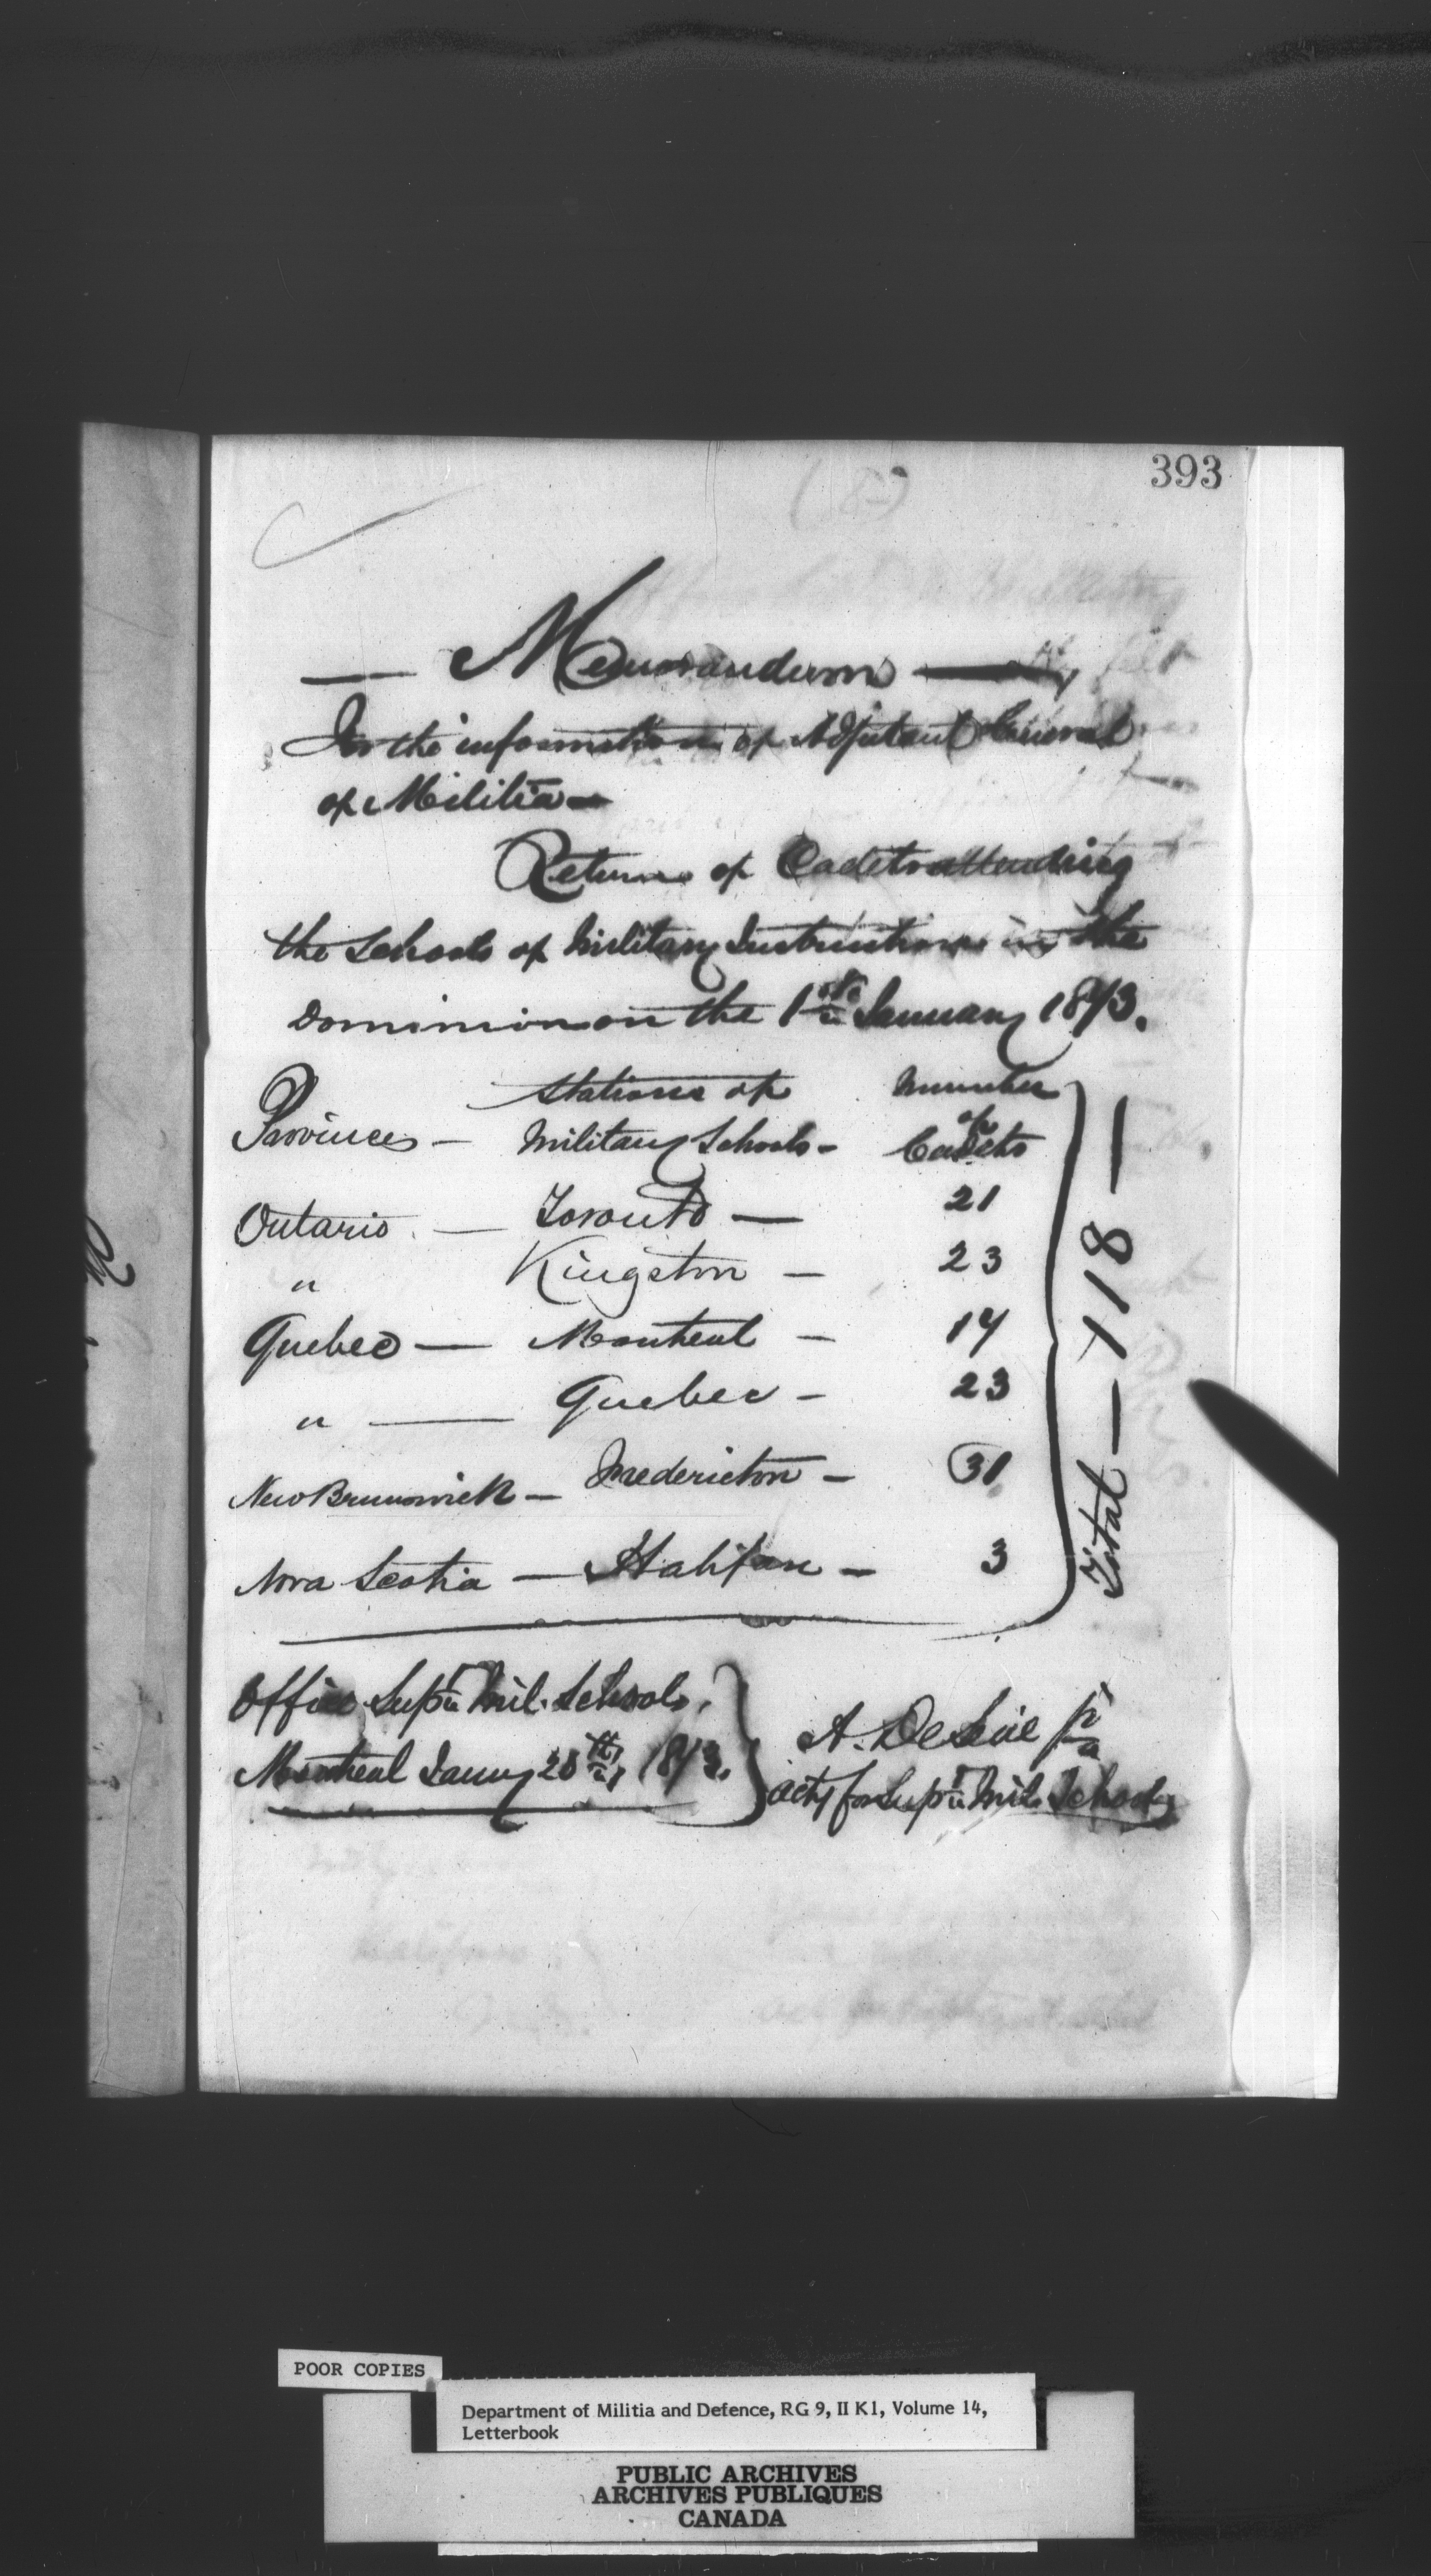 393
Memorandum
For the information of Adjutant General
of Militia
Return of Cadets attending
the Schools of Military Instruction in the
Dominion on the 1st January 1873.
Provinces — Stations of Military Schools — Number of Cadets
Ontario — Toronto — 21
" Kingston — 23
Quebec — Montreal — 17
" — Quebec — 23
New Brunswick — Fredericton — 31
Nova Scotia — Halifax — 3
Total — 118 —
Office Supt Mil. Schools,
Montreal Jany 1873.
A. De
actg for Supt Mil. Schools
POOR COPIES
Department of Militia and Defence, RG 9, II K1, Volume 14,
Letterbook
PUBLIC ARCHIVES
ARCHIVES PUBLIQUES
CANADA